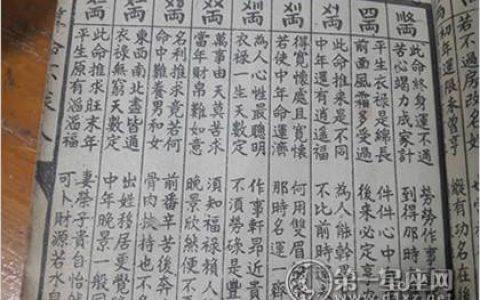 若不過房改名姓
初年運限未曾亨 縱有功名在後
此命終身運不通 勞勞作事
苦心竭力成家計 到得那時
四両
平生衣祿是綿長 件件心中
前面風霜多受過 後來必定享
此命推來是不同 為人能幹異
中年還有逍遙福 不比前時
得寬懷處且寬懷 何用雙眉
若使中年命運濟 那時名利一
為人心性最聰明 作事軒昂近貴
衣祿一生天數定 不須勞碌是
萬事由天莫苦求 須知福祿賴人
當年財帛難如意 晚景欣然便不
名利推求竟若何 前番辛苦後奔
命中難養男和女 骨肉扶持也不
東西南北盡皆通 出姓移居更覺
衣祿無窮天數定 中年晚景一般同
此命推求旺末年 妻榮子貴自怡然
平生原有滔滔福 可卜財源若水泉
第一星座网
www.d1xz.net